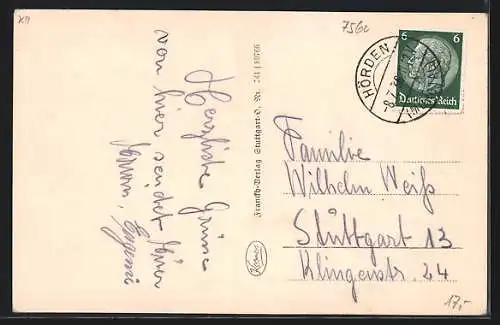 XII
756c
Herzliche Grüsse
von hier sendet Ihnen
Eugenie
Franckh-Verlag Stuttgart-O. Nr.
Kosmos
HÖRDEN
6 6
Deutsches Reich
Familie
Wilhelm Weiß
Stuttgart 13
Klingenstr. 24
17,-